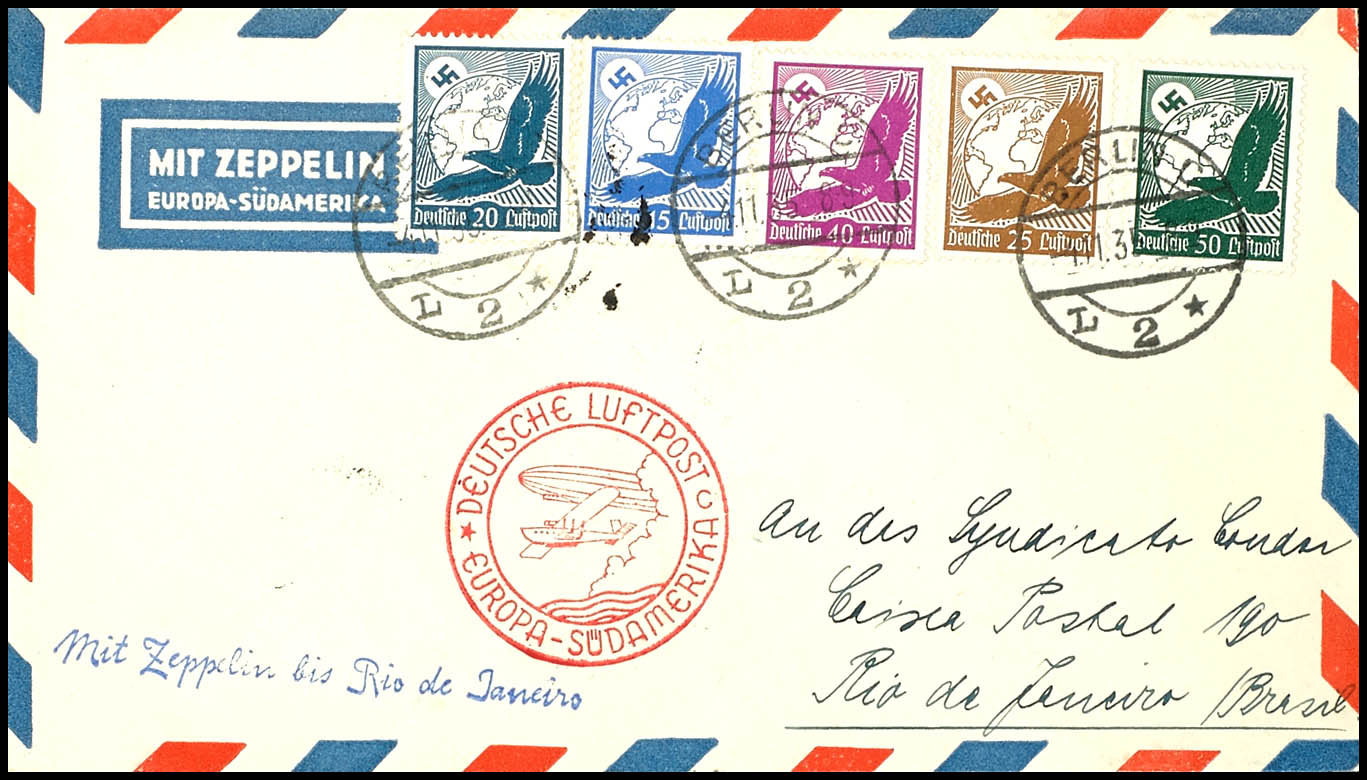 MIT ZEPPELIN
EUROPA-SÜDAMERIKA
Deutsche 20 Luftpost
Deutsche 15 Luftpost
Deutsche 40 Luftpost
Deutsche 25 Luftpost
Deutsche 50 Luftpost
BERLIN
L 2 *
BERLIN
L 2 *
BERLIN
L 2 *
DEUTSCHE LUFTPOST c
* EUROPA-SÜDAMERIKA
An des Syndicato Condor
Caixa Postal 190
Rio de Janeiro /Brasil
Mit Zeppelin bis Rio de Janeiro